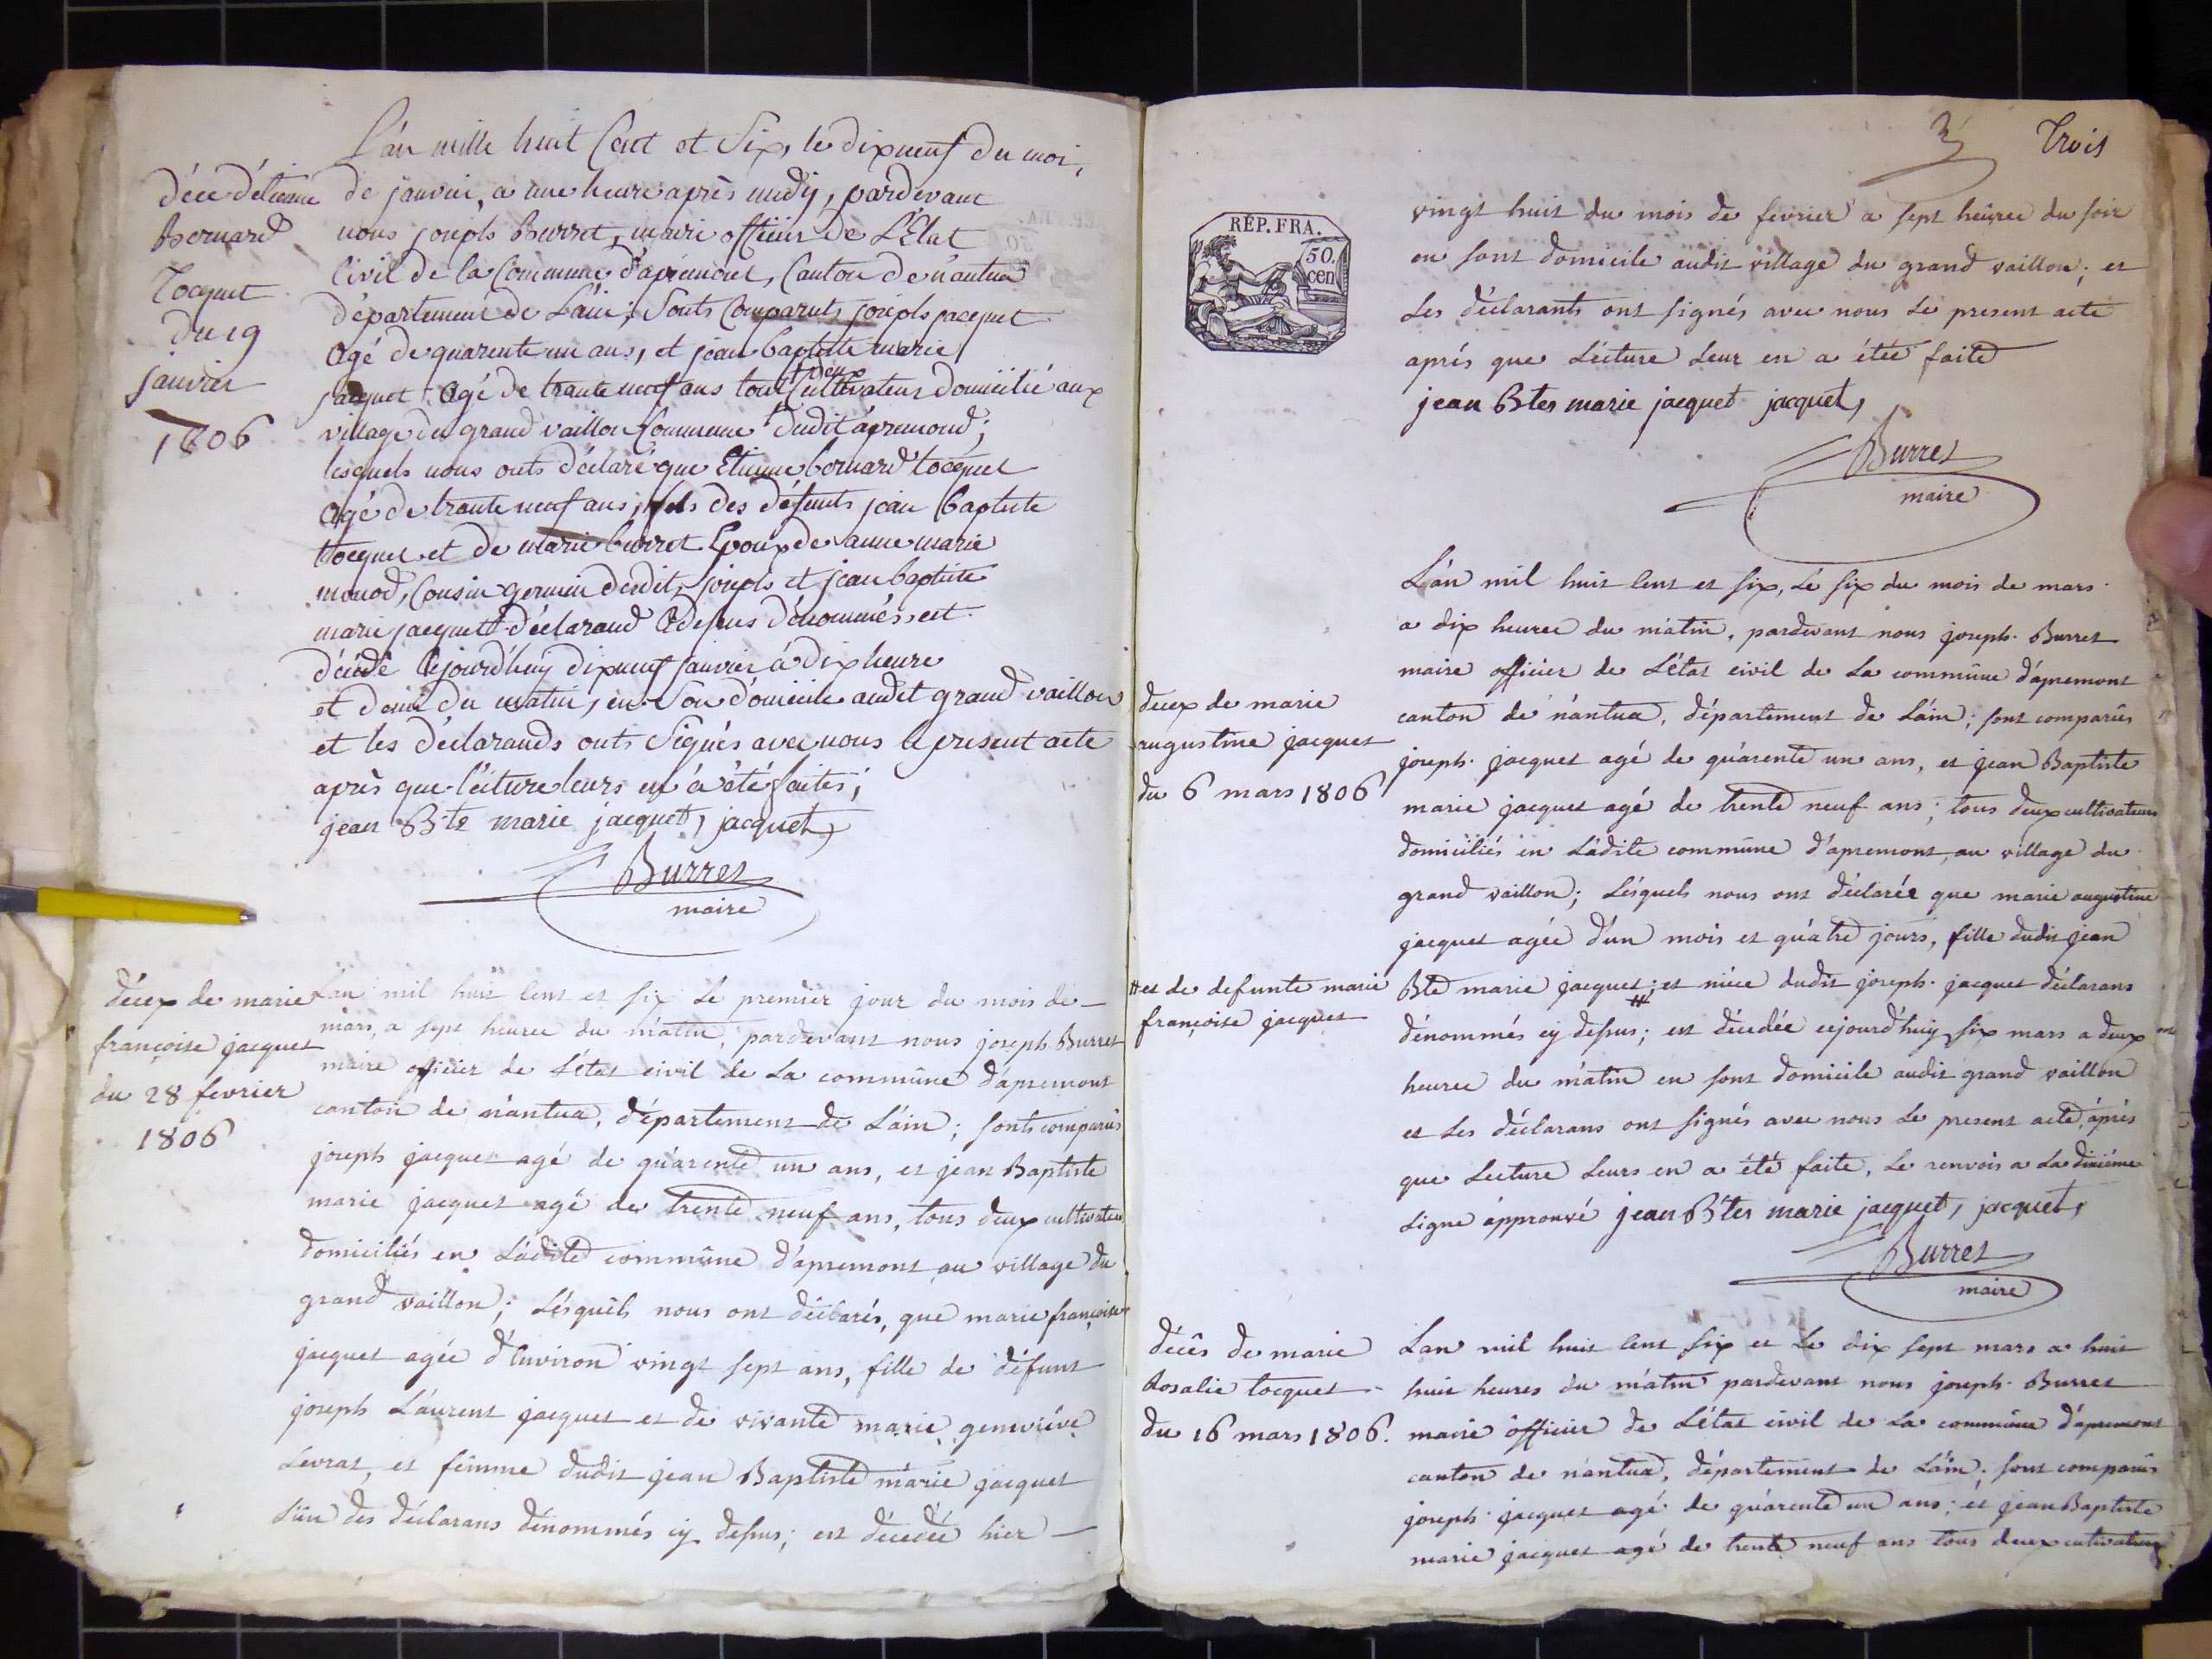 L'an mille huit Cent et Six, le dixneuf du moi,
décé d'étienne
Bernard
Tocquet
du 19
janvier
1806
de janvier, a une heure après midy, pardevant
nous joseph Burret, maire officier de L'État
Civil de la Commune d'apremont, Canton de nantua
département de L'ain; Sonts Comparuts joseph jacquet
Agé de quarente un ans, et jean baptiste marie
jacquet Agé de trante neuf ans tout deux Cultivateur domicilié aux
village du grand vaillon Commune dudit apremond;
lesquels nous onts déclaré que Etienne bernard tocquet
Agé de trante neuf ans, fils des défunts jean baptiste
tocquet et de marie burret Epoux de anne marie
monod, Cousin germin dudit joseph et jean baptiste
marie jacquet déclarand Cydessus dénommés, est
décédé Cejourd'huy dixneuf janvier à dix heure
et demi du matin, en Son domicile audit grand vaillon
et les déclarands onts Signés avec nous le present acte
après que l'écture leurs en à été faites;
jean B.te marie jacquet, jacquet,
Burret
maire
décex de marie
françoise jacquet
du 28 fevrier
1806
L'an mil huit cent et six le premier jour du mois de
mars, a sept heuree du matin, pardevant nous joseph Burret
maire officier de L'état civil de La commune d'apremont
canton de nantua, département de L'ain; sonts comparûs
joseph jacquet agé de quarente un ans, et jean Baptiste
marie jacquet agé de trente neuf ans, tous deux cultivateurs
domiciliés en Ladite commune d'apremont au village du
grand vaillon; Lésquels nous ont déclarés, que marie françoise
jacquet agée d'Environ vingt sept ans, fille de défunt
joseph Laurent jacquet et de vivante marie geneviéve
Levrat, et femme dudit jean Baptiste marie jacquet
L'un des déclarans dénommés cy dessus; est décedée hier
3 Trois
REP. FRA.
50.
cen
vingt huit du mois de fevrier a sept heuree du soir
en sont domicile audit village du grand vaillon; et
Les déclarants ont signés avec nous Le present acte
aprés que Lécture Leur en a étéé faite
jean Btes marie jacquet jacquet,
Burret
maire
deux de marie
augustine jacquet
du 6 mars 1806
L'an mil huit cent et six, Le six du mois de mars
a dix heuree du matin, pardevant nous joseph Burret
maire officier de L'état civil de La commune d'apremont
canton de nantua, département de L'ain; sont comparûs
joseph jacquet agé de quarente un ans, et jean Baptiste
marie jacquet agé de trente neuf ans; tous deux cultivateurs
domiciliés en Ladite commune d'apremont, au village du
grand vaillon; Lésquels nous ont déclarée que marie augustine
jacquet agée d'un mois et quatre jours, fille dudit jean
# et de defunte marie
françoise jacquet
Bte marie jacquet; # et niéce dudit joseph jacquet déclarans
dénommés cy dessus; est décedée cejourd'huy six mars a deux
heuree du matin en sont domicile audit grand vaillon
et Les déclarans ont signés avec nous Le present acte, aprés
que Lecture Leurs en a été faite, Le renvois a La dixiéme
Ligne approuvé jean Btes marie jacquet, jacquet,
Burret
maire
décès de marie
Rosalie tocquet
du 16 mars 1806.
L'an mil huit cent six et Le dix sept mars a huit
huit heures du matin pardevant nous joseph Burret
maire officier de L'état civil de La commune d'apremont
canton de nantua, département de L'ain; sont comparûs
joseph jacquet agé de quarente un ans; et jean Baptiste
marie jacquet agé de trente neuf ans tous deux cultivateurs